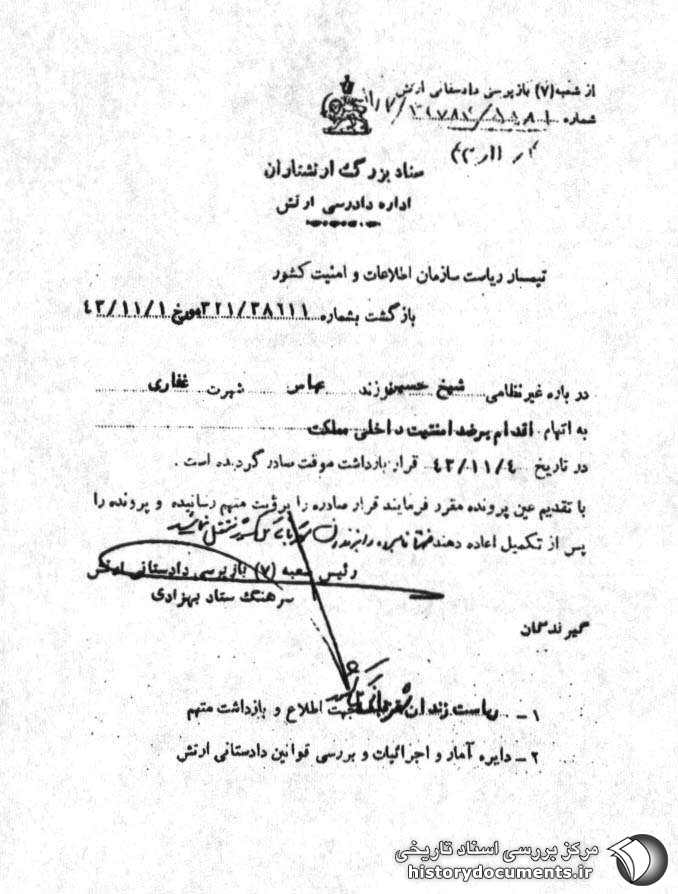 از شعبه (۷) بازپرسی دادستانی ارتش
شماره
ستاد بزرگ ارتشتاران
اداره دادرسی ارتش
تیمسار ریاست سازمان اطلاعات و امنیت کشور
بازگشت بشماره ۳۲۱/۳۸۶۱۱ مورخ ۴۳/۱۱/۱
در باره غیرنظامی شیخ حسین فرزند عباس شهرت غفاری
به اتهام اقدام برضد امنیت داخلی مملکت
در تاریخ ۴۳/۱۱/۴ قرار بازداشت موقت صادر گردیده است .
با تقدیم عین پرونده مقرر فرمایند قرار صادره را برؤیت متهم رسانیده و پرونده را
پس از تکمیل اعاده دهند
رئیس شعبه (۷) بازپرسی دادستانی ارتش
سرهنگ ستاد بهزادی
گیرندگان
۱ - ریاست زندان جهت اطلاع و بازداشت متهم
۲ - دایره آمار و اجرائیات و بررسی قوانین دادستانی ارتش
مرکز بررسی اسناد تاریخی
historydocuments.ir